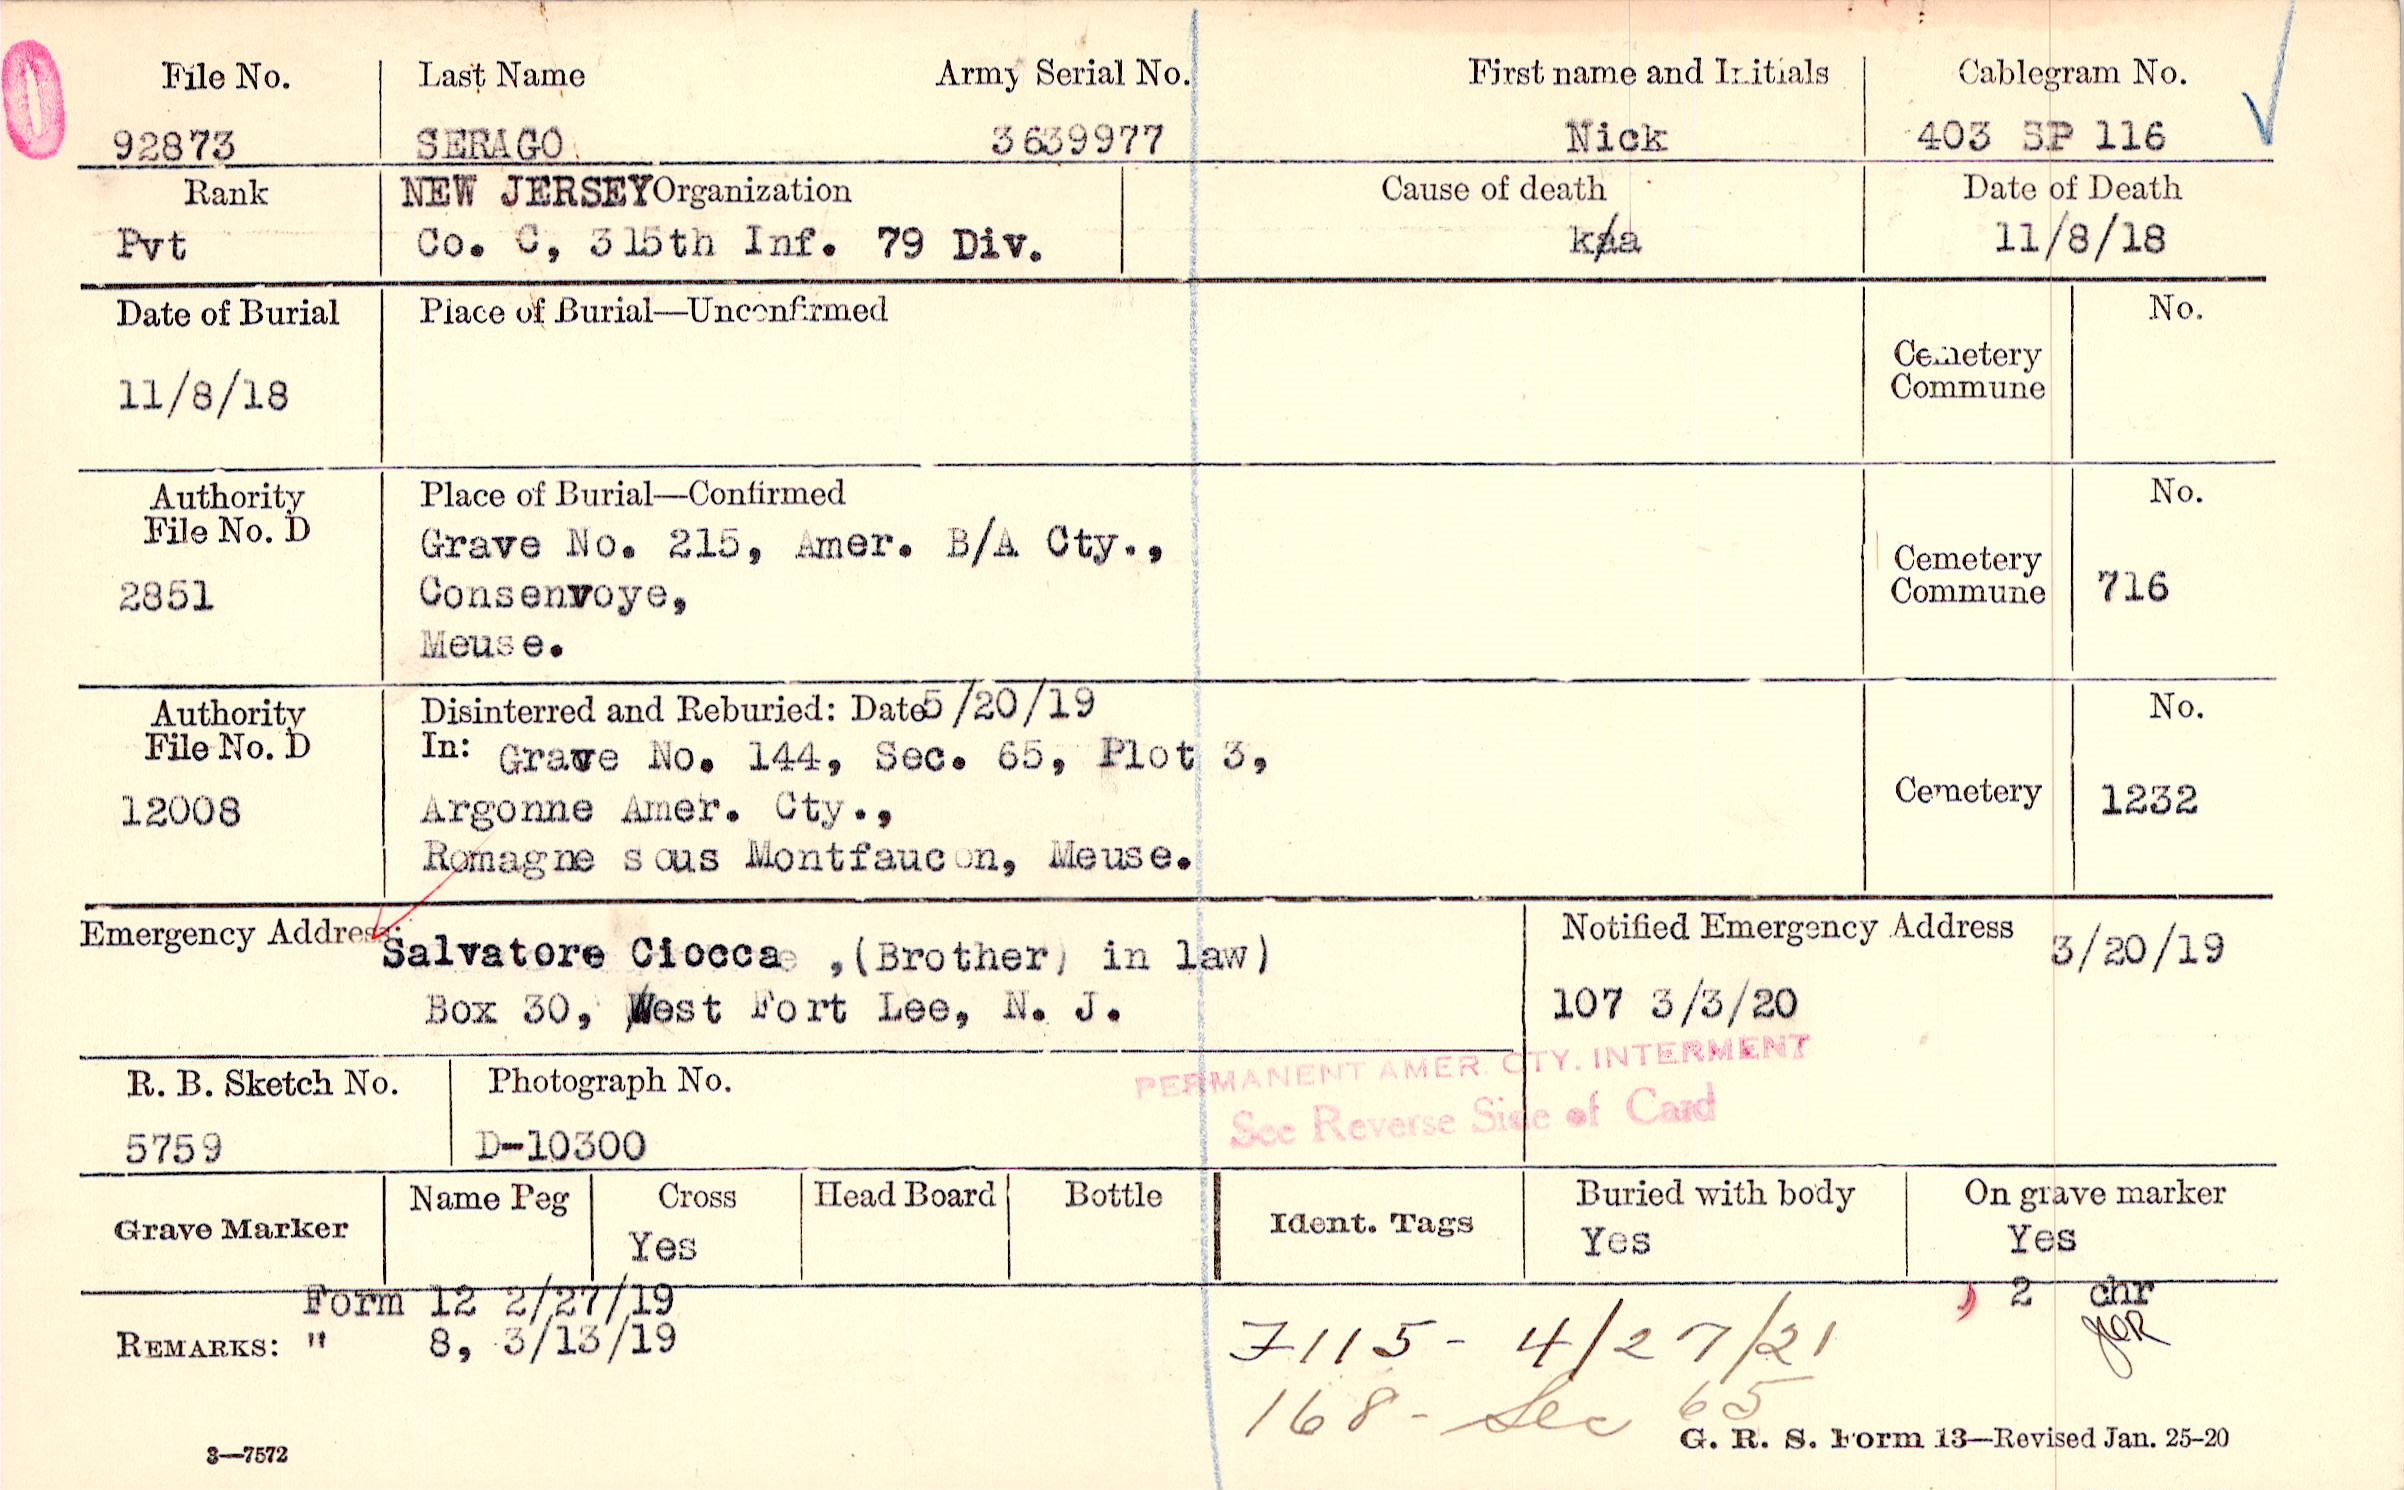 File No. Last Name Army Serial No. First name and Initials Cablegram No.
92873 SERAGO 3639977 Nick 403 SP 116
Rank NEW JERSEY Organization Cause of death Date of Death
Pvt Co. C, 315th Inf. 79 Div. k/a 11/8/18
Date of Burial Place of Burial—Unconfirmed No.
Cemetery
Commune
11/8/18
Authority Place of Burial—Confirmed No.
File No. D Grave No. 215, Amer. B/A Cty.,
Cemetery
2851 Consenvoye, Commune 716
Meuse.
Authority Disinterred and Reburied: Date 5/20/19 No.
File No. D In: Grave No. 144, Sec. 65, Plot 3,
12008 Argonne Amer. Cty., Cemetery 1232
Romagne sous Montfaucon, Meuse.
Emergency Address: Salvatore Ciocca ,(Brother) in law) Notified Emergency Address 3/20/19
Box 30, West Fort Lee, N. J. 107 3/3/20
PERMANENT AMER. CTY. INTERMENT
See Reverse Side of Card
R. B. Sketch No. Photograph No.
5759 D-10300
Grave Marker Name Peg Cross Head Board Bottle Ident. Tags Buried with body On grave marker
Yes Yes Yes
Form 12 2/27/19 2 chr
REMARKS: " 8, 3/13/19 7115- 4/27/21
168- Sec 65
3—7572 G. R. S. Form 13—Revised Jan. 25-20